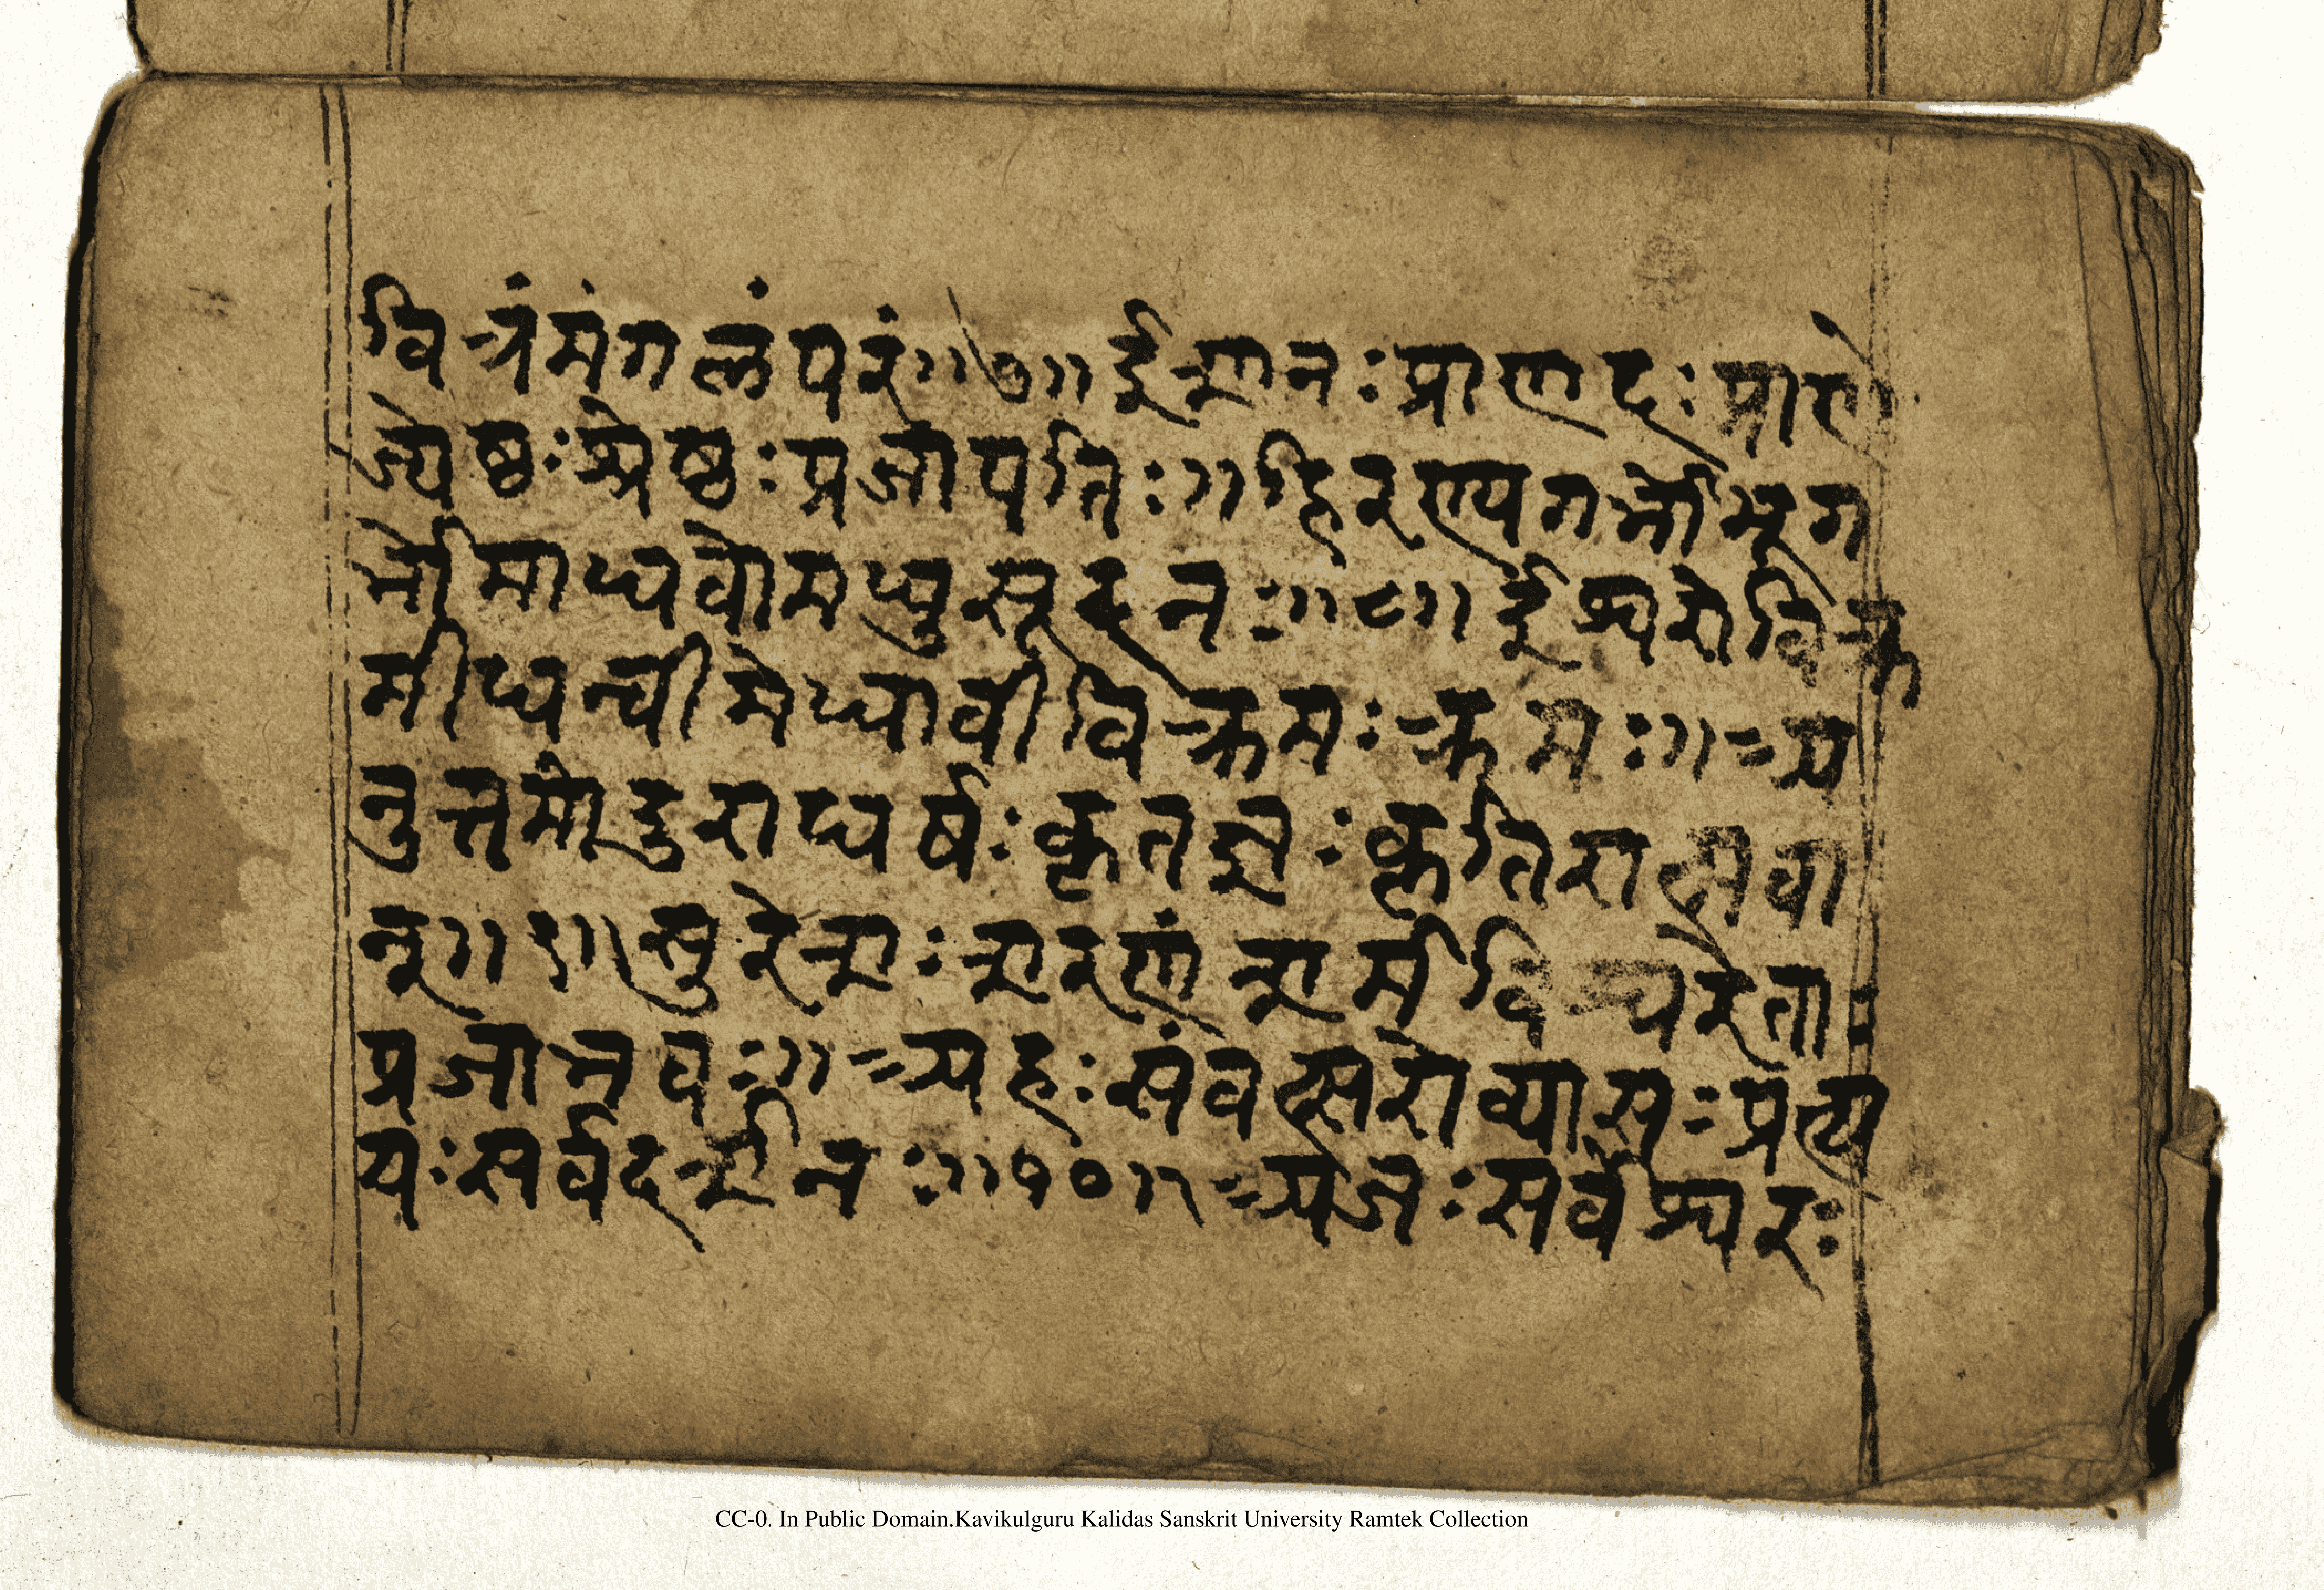 वित्रंमंगलंपरं॥७॥ईशानःप्राणदःप्राणो
ज्येष्ठःश्रेष्ठःप्रजापतिः॥हिरण्यगर्भोभूग
र्भोमाधवोमधुसूदनः॥८॥ईश्वरोविक्र
मीधन्वीमेधावीविक्रमःक्रमः॥अ
नुत्तमोदुराधर्षःकृतज्ञःकृतिरात्मवा
न्॥९॥सुरेशःशरणंशर्मविश्वरेताः
प्रजाभवः॥अहःसंवत्सरोव्यासःप्रत्य
यःसर्वदर्शनः॥१०॥अजःसर्वेश्वरः
CC-0. In Public Domain.Kavikulguru Kalidas Sanskrit University Ramtek Collection